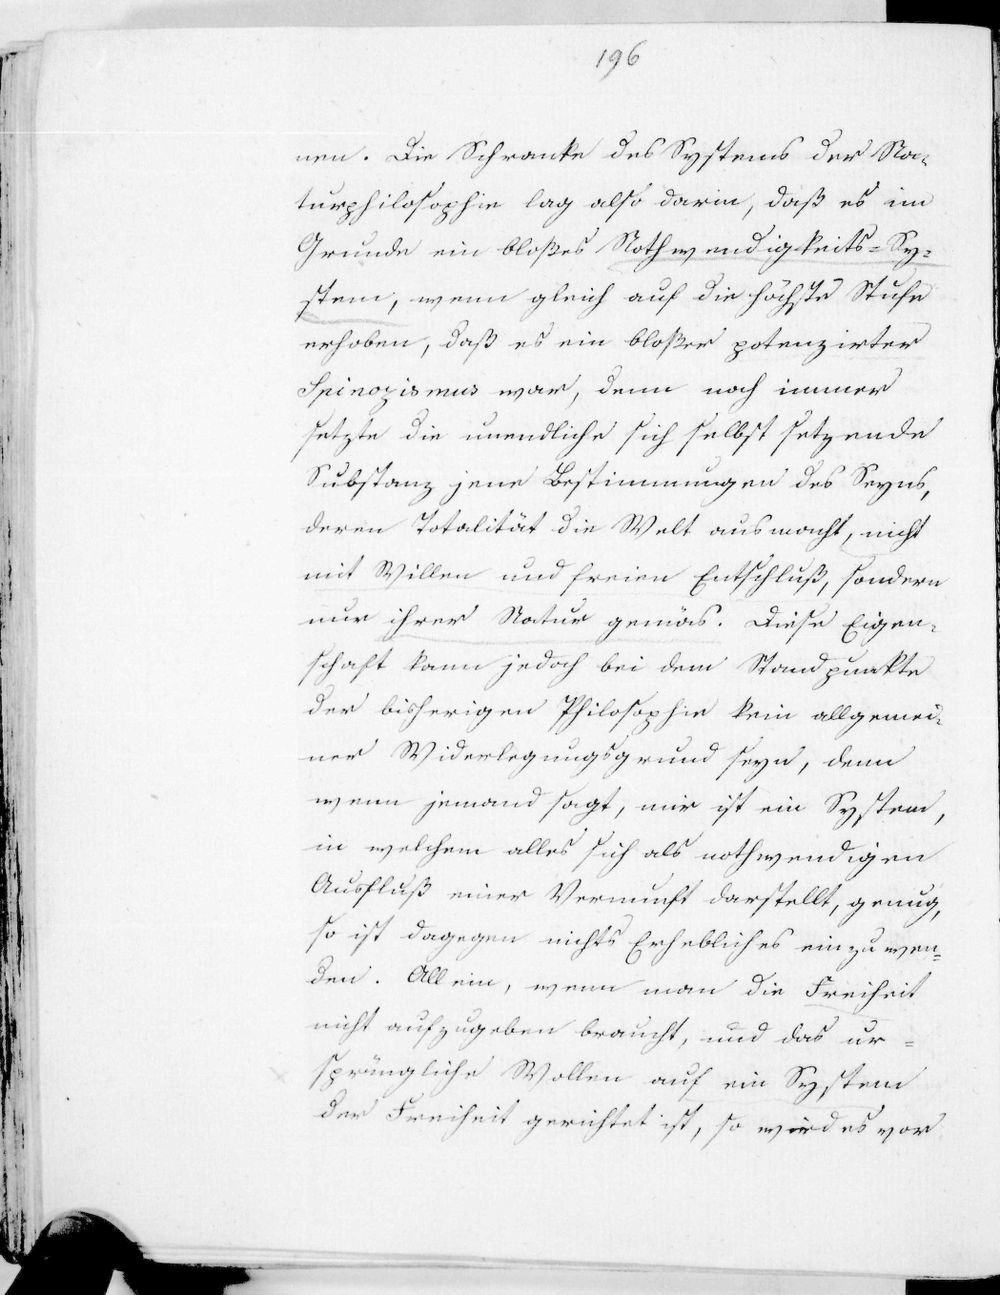 196
nen. Die Schranke des Systems der Na-
turphilosophie lag also darin, daß es im
Grunde ein bloßes Nothwendigkeits=Sy-
stem, wenn gleich auf die höchste Stufe
erhoben, daß es ein bloßer potenzirter
Spinozismus war, denn noch immer
setzte die unendliche sich selbst setzende
Substanz jene Bestimmungen des Seyns,
deren Totalität die Welt ausmacht, nicht
mit Willen und freien Entschluß, sondern
nur ihrer Natur gemäs. Diese Eigen-
schaft kann jedoch bei dem Standpunkte
der bisherigen Philosophie kein allgemei-
ner Widerlegungsgrund seyn, denn
wenn jemand sagt, mir ist ein System,
in welchem alles sich als nothwendigen
Ausfluß einer Vernunft darstellt, genug,
so ist dagegen nichts Erhebliches einzuwen=
den. Allein, wenn man die Freiheit
nicht aufzugeben braucht, und das ur=
sprüngliche Wollen auf ein System
der Freiheit gerichtet ist, so wird es vor